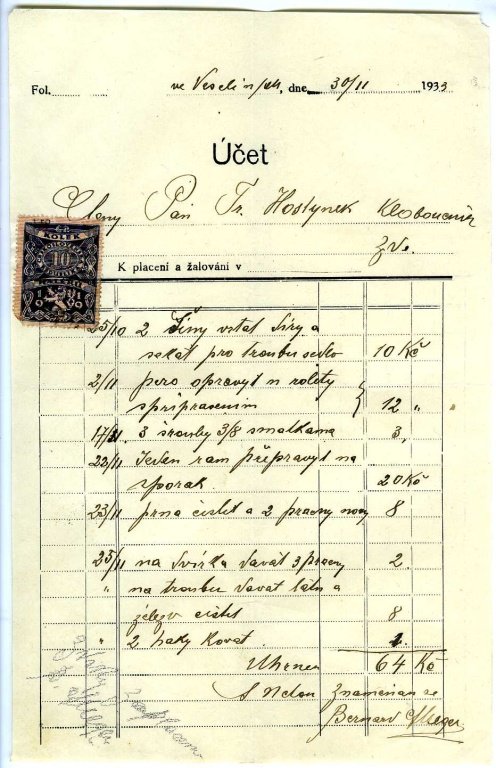 Fol. ve Veselí n/M, dne 30/11 1933
Účet
Cteny Pán Fr. Hostynek Kloboucnik
zve.
KOLEK
10
K placení a žalování v
25/10 2 Siny vrtat Siry a
sekat pro troubu sedlo 10 Kč
2/11 pero opravyt n rolety
spripravenim 12 "
17/11 3 srouby 3/8 smatkama 3,
22/11 Jeden ram připravyt na
sporak. 20 Kč
23/11 prna cistit a 2 pracny novy 8
25/11 na Svirka Davat 3 pracny 2.
" na troubu Davat latu a
zelezo cistit 8
" 2 haky Kovat 1.
Uhrnem 64 Kč
S uctou Znamenam se
Bernard